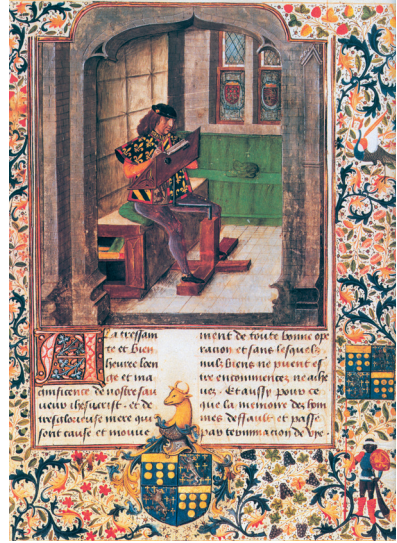 A la tressain
te et bien
heuree loen
ge et ma
gnificence de nostre sau
ueur ihesucrist et de
tresglorieuse mere qui
sont cause et mouue
ment de toute bonne ope
racion et sans lesquelz
nulz biens ne peuent es
tre encommencez ne ache
uez. Et aussy pour ce
que la memoire des hom
mes deffault et passe
par terminacion de vye